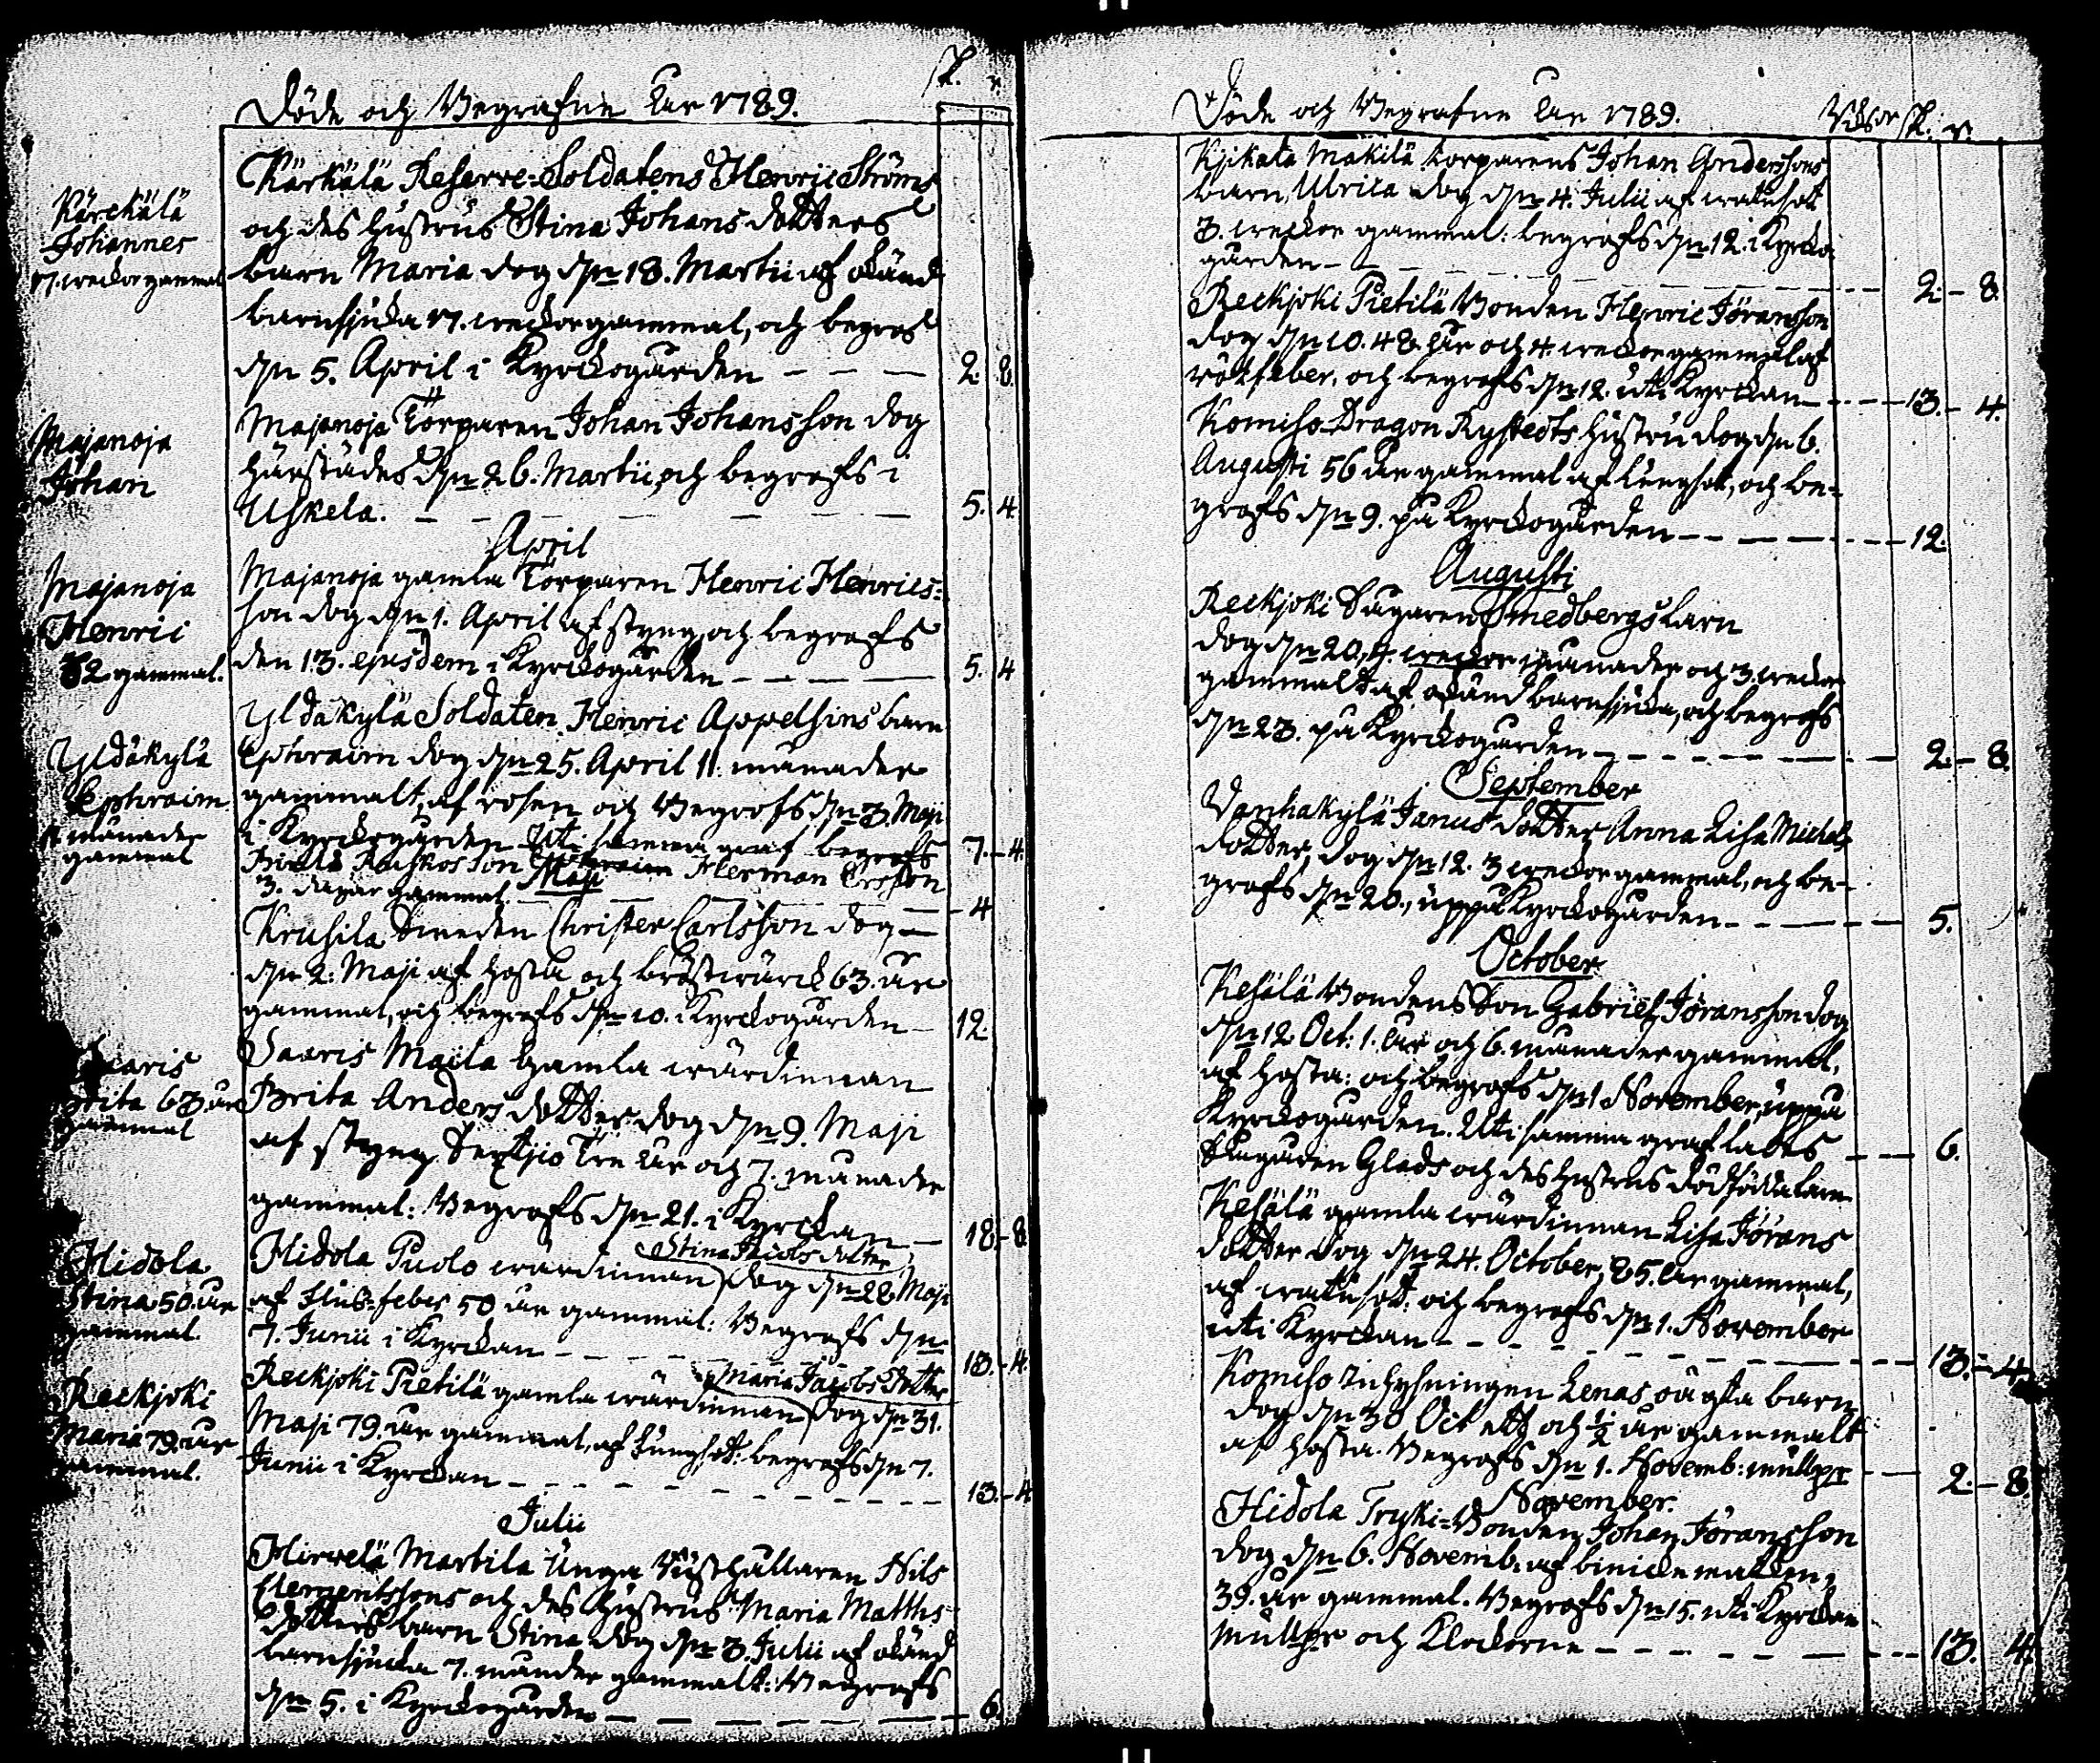 Döde och Begrafne åhr 1789.
Kärkälä
Johannes
17. weckor gammal
Kärkälä Reserve-Soldatens Henric Ströms
och des hustrus Stina Johans dotters
barn Maria dog dn 18. Martii af okänd
barnsjuka 17. weckor gammal, och begrofs
dn 5. April i Kyrckogården 2. 8.
Majanoja
Johan
Majanoja Torparen Johan Johansson dog
härstädes dn 26. Martii, och begrofs i
Uskela. 5. 4
April
Majanoja
Henric
82 gammal.
Majanoja gamla Torparen Henric Henrics-
son dog dn 1. April af styng, och begrofs
den 13. ejusdem i Kyrckogården 5. 4
Yldäkylä
Ephraim
månader
gammal
Yldäkylä Soldaten Henric Appelsins barn
Ephraim dog dn 25. April 11. månader
gammalt, af rosen och Begrofs dn 3. Maji
i Kyrckogården Uti samma graf begrofs 7. - 4.
Herman Ersson
3. dagar gammal 4
Maji
Krusila Smeden Christer Carlsson dog
dn 2. Maji af hosta och bröstwärck 63 år
gammal, och begrofs dn 10. i Kyrckogården 12.
Saaris
Brita 63. år
gammal
Saaris Maila gamla wärdinnan
Brita Anders dotter dog dn 9. Maji
af styng Sextjio Tre år och 7. månader
gammal: Begrofs dn 21. i Kyrckan 18. - 8
Hidola
Stina 50. år
gammal.
Stina Jacobs dotter
Hidola Puolo wärdinnan dog dn 22 Maji
af Flus-feber 50 år gammal: Begrofs dn
7. Junii i Kyrckan 13. - 4.
Reckjoki
Maria 79. år
gammal.
Maria Jacobs Dotter
Reckjoki Pietilä gamla wärdinnan dog dn 31.
Maji 79. år gammal, af lungsot: begrofs dn 7.
Junii i Kyrckan 13. - 4
Julii
Hirvelä Martila Unga Rusthållaren Nils
Clementssons och des hustrus Maria Matths
dotters barn Stina dog dn 3. Julii af okänd
barnsjucka 7. månader gammalt: Begrofs
dn 5. i Kyrckogården 6.
Döde och Begrafne åhr 1789.
Kjikala Mäkilä torparens Johan Anderssons
barn, Ulrica dog dn 4. Julii af watusot
3. weckor gammal: begrofs dn 12. i Kyrcko
gården 2. - 8.
Reckjoki Pietilä Bonden Henric Jöransson
dog dn 10. 48. år och 4. weckor gammal af
rötfeber, och begrofs dn 12. uti Kyrckan 13. - 4.
Komiso Dragon Rystedts hustru dog dn 6.
Augusti 56 år gammal af lungsot, och be-
grofs dn 9. på Kyrckogården 12.
Augusti
Reckjoki Sågaren Smedbergs barn
dog dn 20, månader och 3. weckor
gammalt af okänd barnsjucka, och begrofs
dn 23. på Kyrckogården 2. - 8.
September
Vanhakylä Janus dotter Anna Lisa Michels
dotter, dog dn 12. 3 weckor gammal, och be-
grofs dn 20., uppå Kyrckogården 5.
October
Kesälä Bondens Son Gabriel Jöransson dog
dn 12 Oct: 1. år och 6. månader gammal,
af hosta: och begrofs dn 1 November, uppå
Kyrckogården. Uti samma graf lades 6.
Glads och des hustrus dödfödda barn
Kesälä gamla wärdinnan Lisa Jörans
dotter dog dn 24. October, 85. år gammal,
af watusot: och begrofs dn 1. November
uti Kyrckan 13. - 4.
Komiso Inhysningen Lenas oägta barn
dog dn 30 Oct ett och ½ år gammalt
af hosta. Begrofs dn 1. Novemb: 2. - 8.
November.
Hidola Tryki-Bonden Johan Jöransson
dog dn 6. Novemb. af
39. år gammal. Begrofs dn 15. uti Kyrckan
och Klockorne 13. 4.